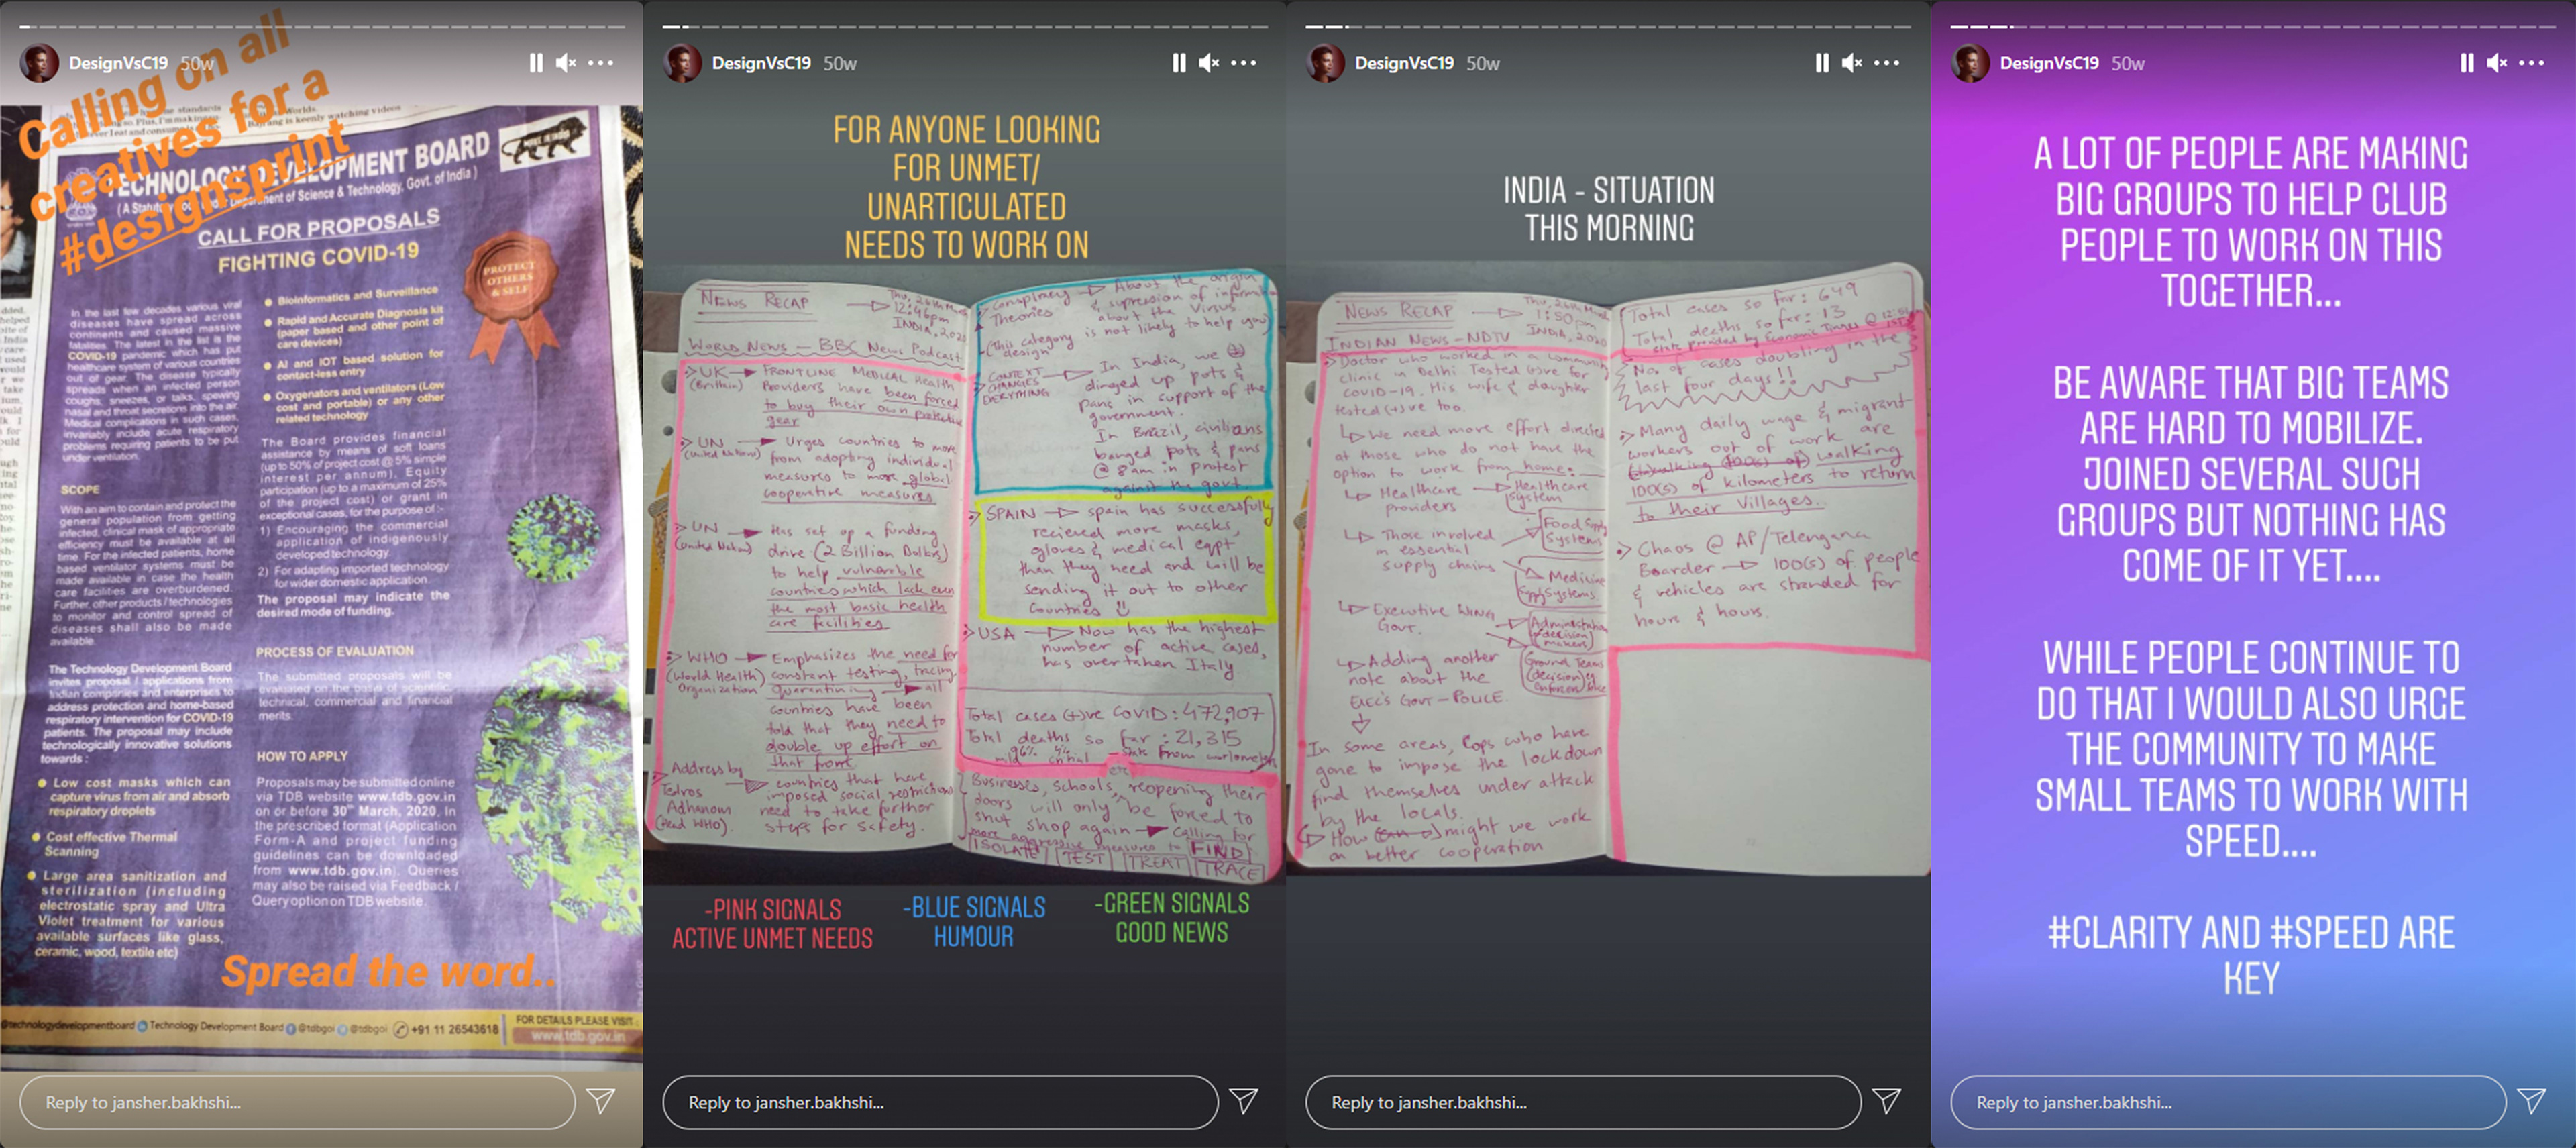 DesignVsC19 50w
Calling on all
creatives for a
#designsprint
TECHNOLOGY DEVELOPMENT BOARD
(A Statutory Department of Science & Technology, Govt. of India )
CALL FOR PROPOSALS
FIGHTING COVID-19
PROTECT
OTHERS
& SELF
In the last few decades various viral
diseases have spread across
continents and caused massive
fatalities. The latest in the list is the
COVID-19 pandemic which has put
healthcare system of various countries
out of gear. The disease typically
spreads when an infected person
coughs, sneezes, or talks, spewing
nasal and throat secretions into the air.
Medical complications in such cases,
invariably include acute respiratory
problems requiring patients to be put
under ventilation.
SCOPE
With an aim to contain and protect the
general population from getting
infected, clinical mask of appropriate
efficiency must be available at all
time. For the infected patients, home
based ventilator systems must be
made available in case the health
care facilities are overburdened.
Further, other products / technologies
to monitor and control spread of
diseases shall also be made
available.
The Technology Development Board
invites proposal / applications from
Indian companies and enterprises to
address protection and home-based
respiratory intervention for COVID-19
patients. The proposal may include
technologically innovative solutions
towards :
Low cost masks which can
capture virus from air and absorb
respiratory droplets
Cost effective Thermal
Scanning
Large area sanitization and
sterilization (including
electrostatic spray and Ultra
Violet treatment for various
available surfaces like glass,
ceramic, wood, textile etc)
Bioinformatics and Surveillance
Rapid and Accurate Diagnosis kit
(paper based and other point of
care devices)
AI and IOT based solution for
contact-less entry
Oxygenators and ventilators (Low
cost and portable) or any other
related technology
The Board provides financial
assistance by means of soft loans
(up to 50% of project cost @ 5% simple
interest per annum), Equity
participation (up to a maximum of 25%
of the project cost) or grant in
exceptional cases, for the purpose of :-
1) Encouraging the commercial
application of indigenously
developed technology.
2) For adapting imported technology
for wider domestic application.
The proposal may indicate the
desired mode of funding.
PROCESS OF EVALUATION
The submitted proposals will be
evaluated on the basis of scientific,
technical, commercial and financial
merits.
HOW TO APPLY
Proposals may be submitted online
via TDB website www.tdb.gov.in
on or before 30th March, 2020. In
the prescribed format (Application
Form-A and project funding
guidelines can be downloaded
from www.tdb.gov.in). Queries
may also be raised via Feedback /
Query option on TDB website.
Spread the word..
@technologydevelopmentboard Technology Development Board @tdbgoi @tdbgoi +91 11 26543618
FOR DETAILS PLEASE VISIT :
www.tdb.gov.in
Reply to jansher.bakhshi...
DesignVsC19 50w
FOR ANYONE LOOKING
FOR UNMET/
UNARTICULATED
NEEDS TO WORK ON
NEWS RECAP
Thu, 26th
12:46pm
INDIA, 2020
WORLD NEWS — BBC News Podcast
UK FRONTLINE MEDICAL Health
(Britain) Providers have been forced
to buy their own protective
gear
UN Urges countries to move
(United Nations) from adopting individual
measures to more global
cooperative measures
UN Has set up a funding
(United Nations) drive (2 Billion Dollars)
to help vulnerable
countries which lack even
the most basic health
care facilities
WHO Emphasizes the need for
(World Health Organization) constant testing, tracing,
quarantining all
countries have been
told that they need to
double up effort on
that front
Address by Tedros Adhanom (Head WHO).
countries that have
imposed social restrictions
need to take further
steps for safety.
Conspiracy Theories About the origin
& supression of information
about the Virus.
(This category is not likely to help you design)
CONTEXT CHANGES EVERYTHING
In India, we
dinged up pots &
pans in support of the
government.
In Brazil, civilians
banged pots & pans
@ 8am in protest
against the govt.
SPAIN spain has successfully
recieved more masks,
gloves & medical eqpt
than they need and will be
sending it out to other
countries
USA Now has the highest
number of active cases,
has overtaken Italy
Total cases (+)ve COVID: 472,907
Total deaths so far: 21,315
96% mild 4% critical
Businesses, schools, reopening their
doors will only be forced to
shut shop again calling for
more aggressive measures to FIND
ISOLATE TEST TREAT TRACE
-PINK SIGNALS
ACTIVE UNMET NEEDS
-BLUE SIGNALS
HUMOUR
-GREEN SIGNALS
GOOD NEWS
Reply to jansher.bakhshi...
DesignVsC19 50w
INDIA - SITUATION
THIS MORNING
NEWS RECAP
1:50pm
INDIA, 2020
INDIAN NEWS - NDTV
Doctor who worked in a community
clinic in Delhi Tested (+)ve for
COVID-19. His wife & daughter
tested (+)ve too.
We need more effort directed
at those who do not have the
option to work from home:
Healthcare providers Healthcare system
Those involved in essential supply chains
Food Supply Systems
Medicine Supply Systems
Executive WING Govt.
Administration (decision makers)
Adding another
note about the
Exec's Govt - POLICE.
Ground Teams
In some areas, Cops who have
gone to impose the lockdown
find themselves under attack
by the locals.
How might we work
on better cooperation
Total cases so far: 649
Total deaths so far: 13
No. of cases doubling in the
last four days!!
Many daily wage & migrant
workers out of work are
walking
100(s) of kilometers to return
to their villages.
Chaos @ AP/Telengana
Boarder 100(s) of people
& vehicles are stranded for
hours & hours.
Reply to jansher.bakhshi...
DesignVsC19 50w
A LOT OF PEOPLE ARE MAKING
BIG GROUPS TO HELP CLUB
PEOPLE TO WORK ON THIS
TOGETHER...
BE AWARE THAT BIG TEAMS
ARE HARD TO MOBILIZE.
JOINED SEVERAL SUCH
GROUPS BUT NOTHING HAS
COME OF IT YET....
WHILE PEOPLE CONTINUE TO
DO THAT I WOULD ALSO URGE
THE COMMUNITY TO MAKE
SMALL TEAMS TO WORK WITH
SPEED....
#CLARITY AND #SPEED ARE
KEY
Reply to jansher.bakhshi...